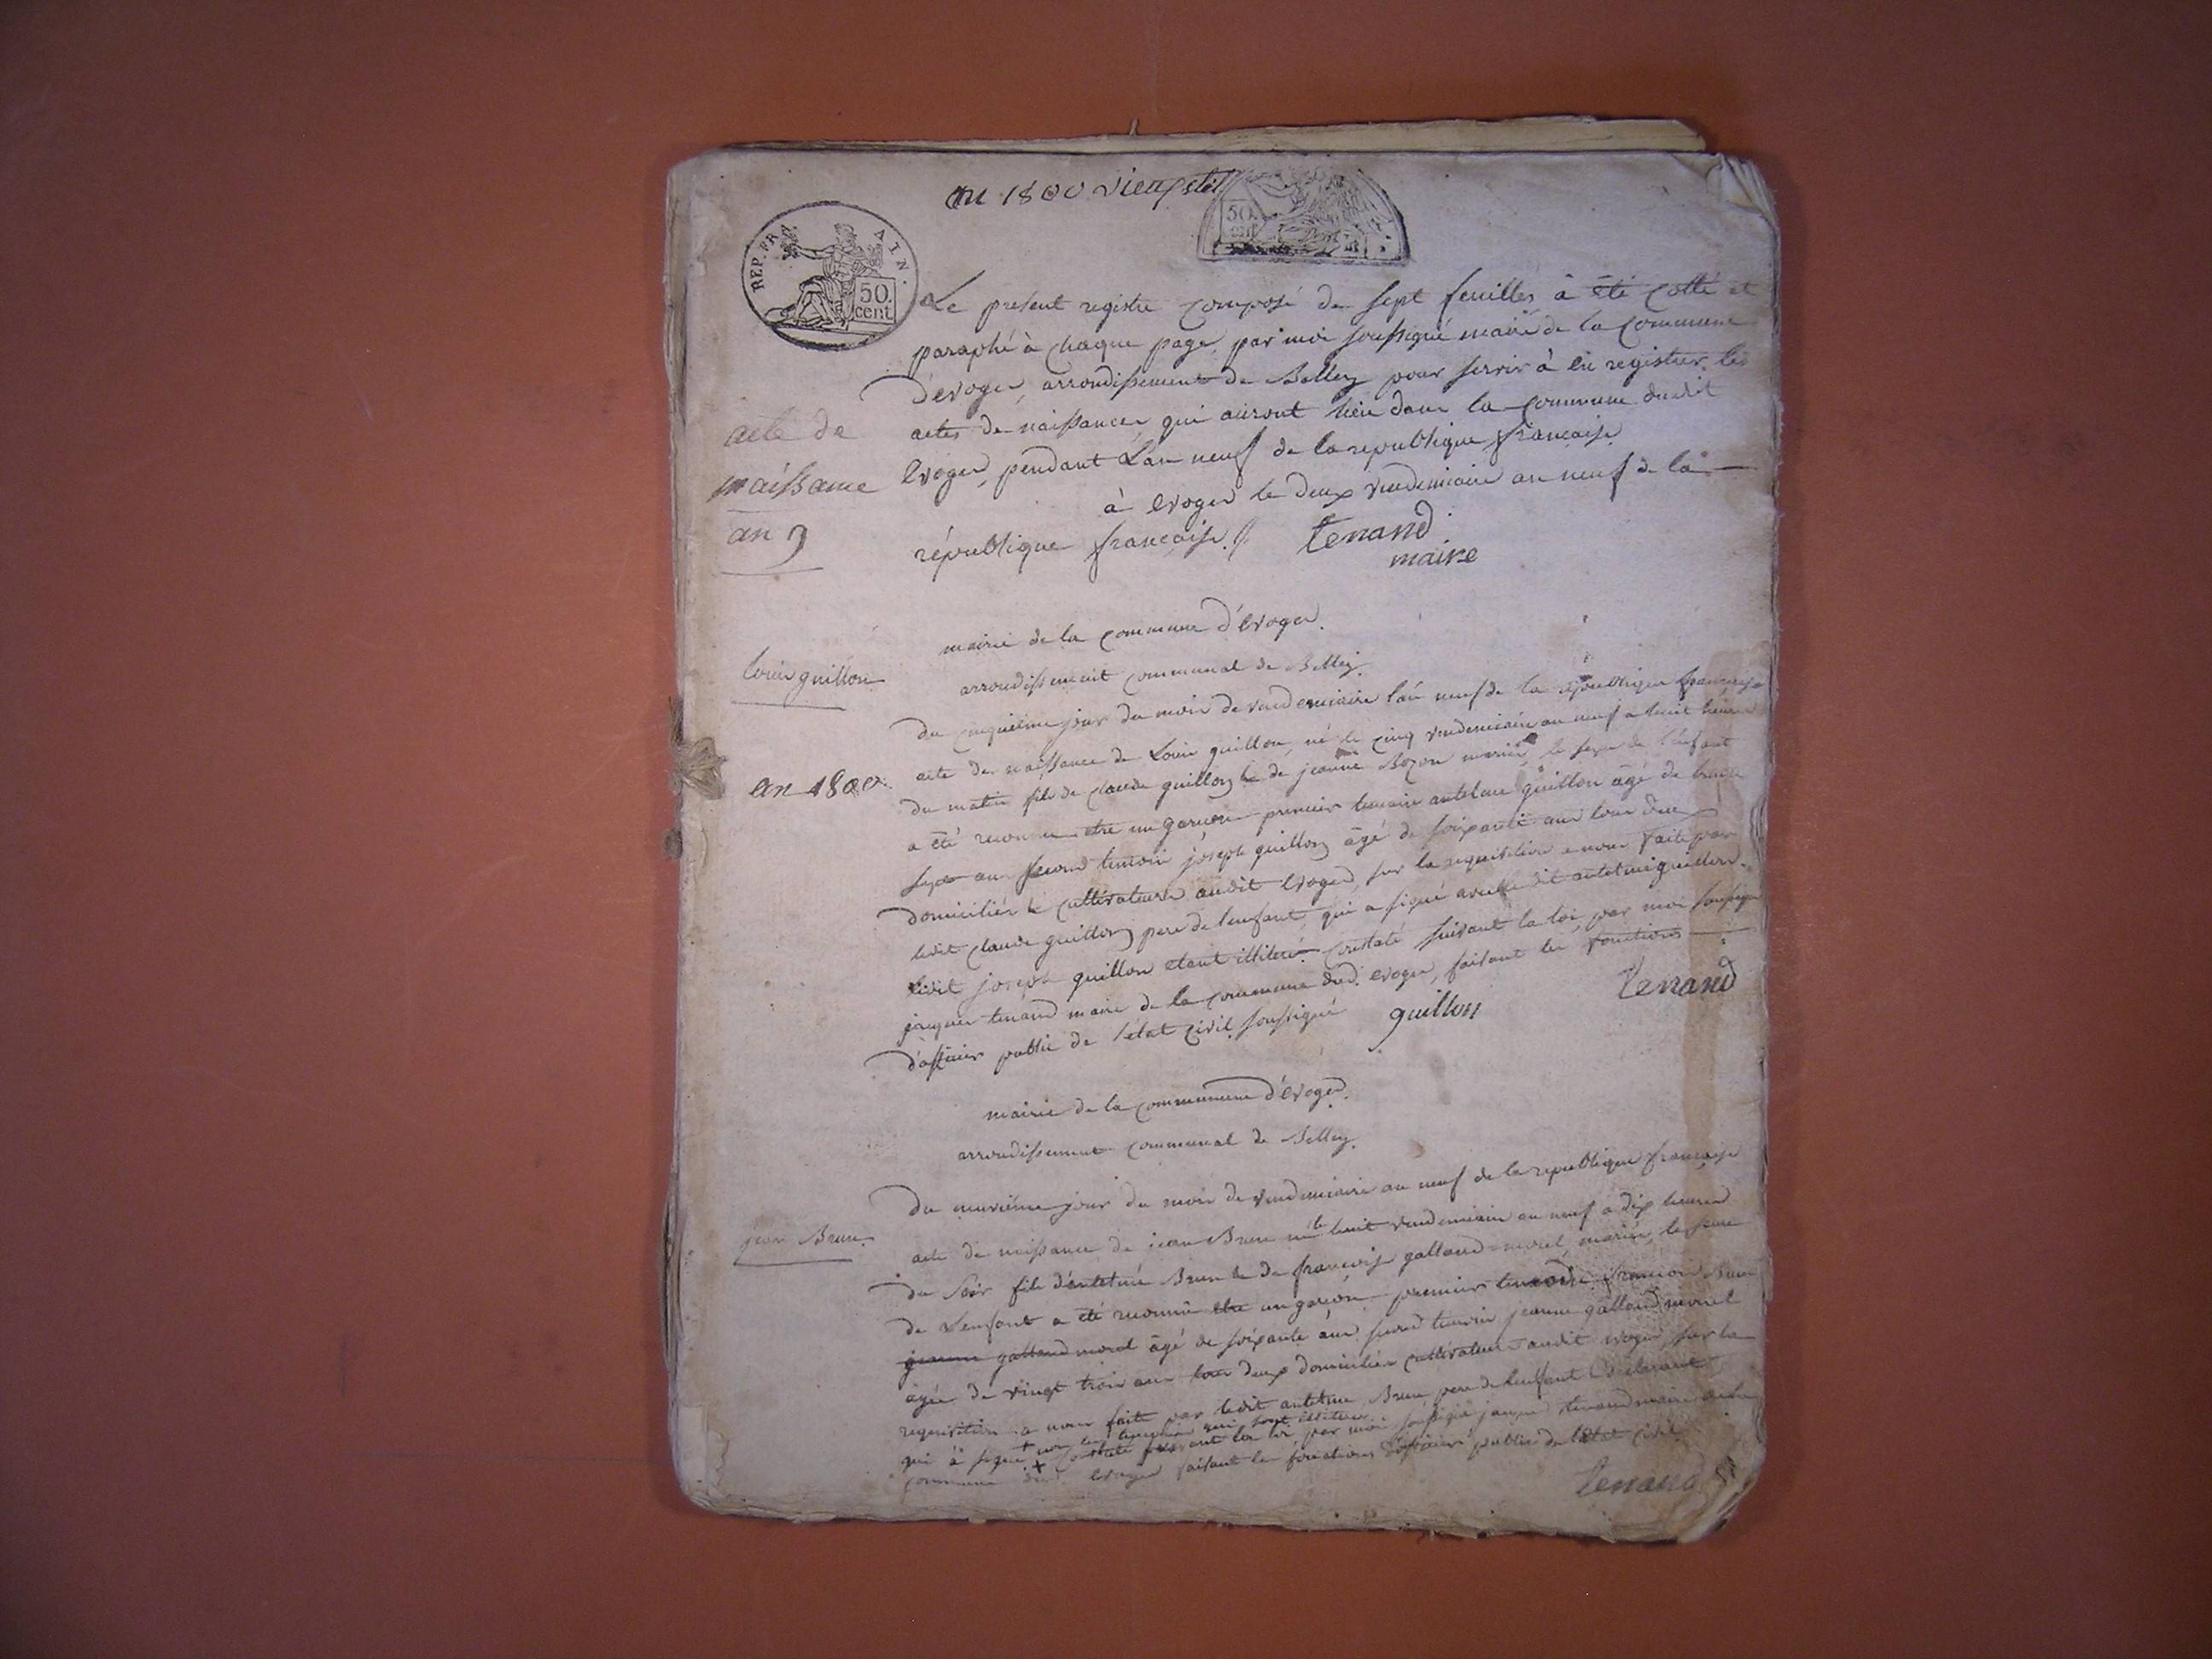 an 1800 vieux stil
REP. FRA AIN.
50. cent
50. cent
Le present registre composé de sept feuilles à été cotté et
paraphé à chaque page, par moi soussigné maire de la commune
d'evoges, arrondissement de Belley pour servir à en registrer les
actes de naissances, qui auront lieu dans la commune dudit
Evoges, pendant L'an neuf de la republique française
à evoges le deux vendemiaire an neuf de la
république française.
tenand
maire
acte de
naissance
an 9
mairie de la commune d'évoges.
arrondissement communal de Belley.
louis guillon
du cinquième jour du mois de vendemiaire l'an neuf de la republique française
acte de naissance de Louis guillon, né le cinq vendemiaire an neuf a huit heures
an 1800.
du matin fils de claude guillon & de jeanne Bozon mariés, le sexe de l'enfant
a été reconnu etre un garçon premier temoin antelme guillon âgé de trente
sept ans second temoin joseph guillon âgé de soixante ans tous deux
domiciliés & cultivateurs audit evoges, sur la requisition a nous faite par
ledit claude guillon pere de l'enfant, qui a signé avec ledit antelme guillon.
ledit joseph guillon etant illiteré constaté suivant la loi, par moi soussigné
jacques tenand maire de la commune dud. evoges, faisant les fonctions
d'officier public de l'état civil soussigné
guillon
tenand
mairie de la commune d'évoges.
arrondissement communal de Belley.
du neuvième jour du mois de vendemiaire an neuf de la republique française
jean Brun
acte de naissance de jean Brun né le huit vendemiaire an neuf a dix heures
du soir fils d'antelme Brun & de françoise galland morel, mariés, le sexe
de L'enfant a été reconnu etre un garçon premier temoin françois Brun
jeanne galland morel âgé de soixante ans second temoin jeanne galland morel
agée de vingt trois ans tous deux domiciliés cultivateurs audit evoges, sur la
requisition a nous faite par ledit antelme Brun pere de l'enfant
qui à signé + constaté suivant la loi, par moi soussigné jacques tenand maire de la
+ non les temoins qui sont illiterés
commune dud. evoges faisant les fonctions d'officier public de l'état civil
tenand